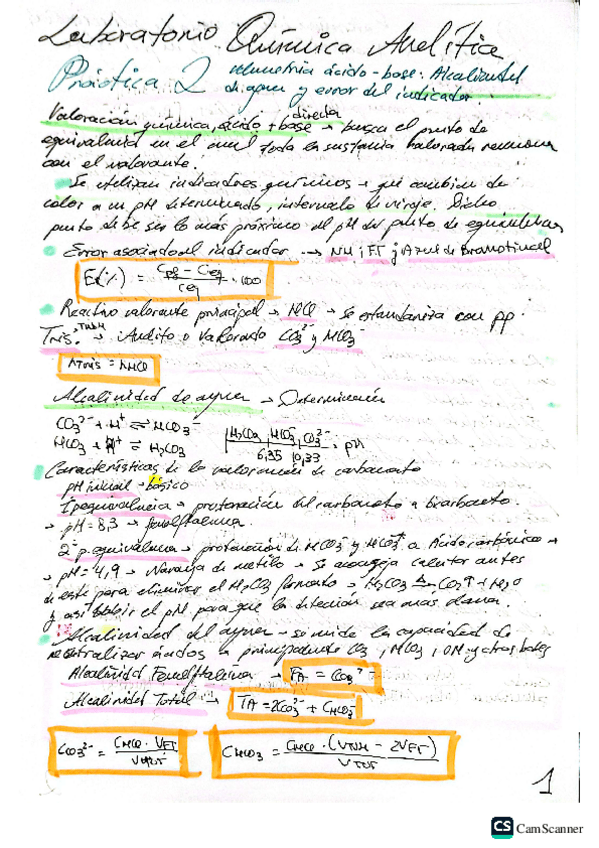 Laboratorio Química Analítica
Práctica 2 Volumetría ácido-base: Alcalinidad
de agua y error del indicador.
Valoración química, ácido + base → directa busca el punto de
equivalencia en el cual toda la sustancia valorada reacciona
con el valorante.
Se utilizan indicadores químicos → que cambian de
color a un pH determinado, intervalo de viraje. Dicho
punto debe ser lo más próximo al pH del punto de equivalencia
Error asociado al indicador → NM ; FT ; Azul de Bromotimol
Er(%) = (Cpf - Ceq)/Ceq · 100
Reactivo valorante principal → HCl → se estandariza con pp.
Tris. → o Valorando CO3²⁻ y HCO3⁻
nTris = nHCl
Alcalinidad de aguas → Determinación
CO3²⁻ + H⁺ ⇌ HCO3⁻
HCO3 + H⁺ ⇌ H2CO3
H2CO3 | HCO3⁻ | CO3²⁻ → pH
6,35 10,33
Características de la valoración de carbonato
pH inicial → básico
1º p equivalencia → protonación del carbonato a bicarbonato.
→ pH = 8,3 → fenolftaleína.
2º p. equivalencia → protonación de HCO3⁻ y HCO3⁻ a Ácido carbónico →
→ pH = 4,9 → Naranja de metilo → Se aconseja calentar antes
de este para eliminar el H2CO3 formado → H2CO3 Δ→ CO2↑ + H2O
y así subir el pH para que la detección sea más clara.
Alcalinidad del agua → se mide la capacidad de
neutralizar ácidos → principalmente CO3, HCO3, OH y otras bases
Alcalinidad Fenolftaleína → FA = CCO3²⁻
Alcalinidad Total → TA = 2CO3²⁻ + CHCO3
CCO3²⁻ = (CHCl · VFT)/
CHCO3 = CHCl · (VNM - 2VFT)/
1
CS CamScanner